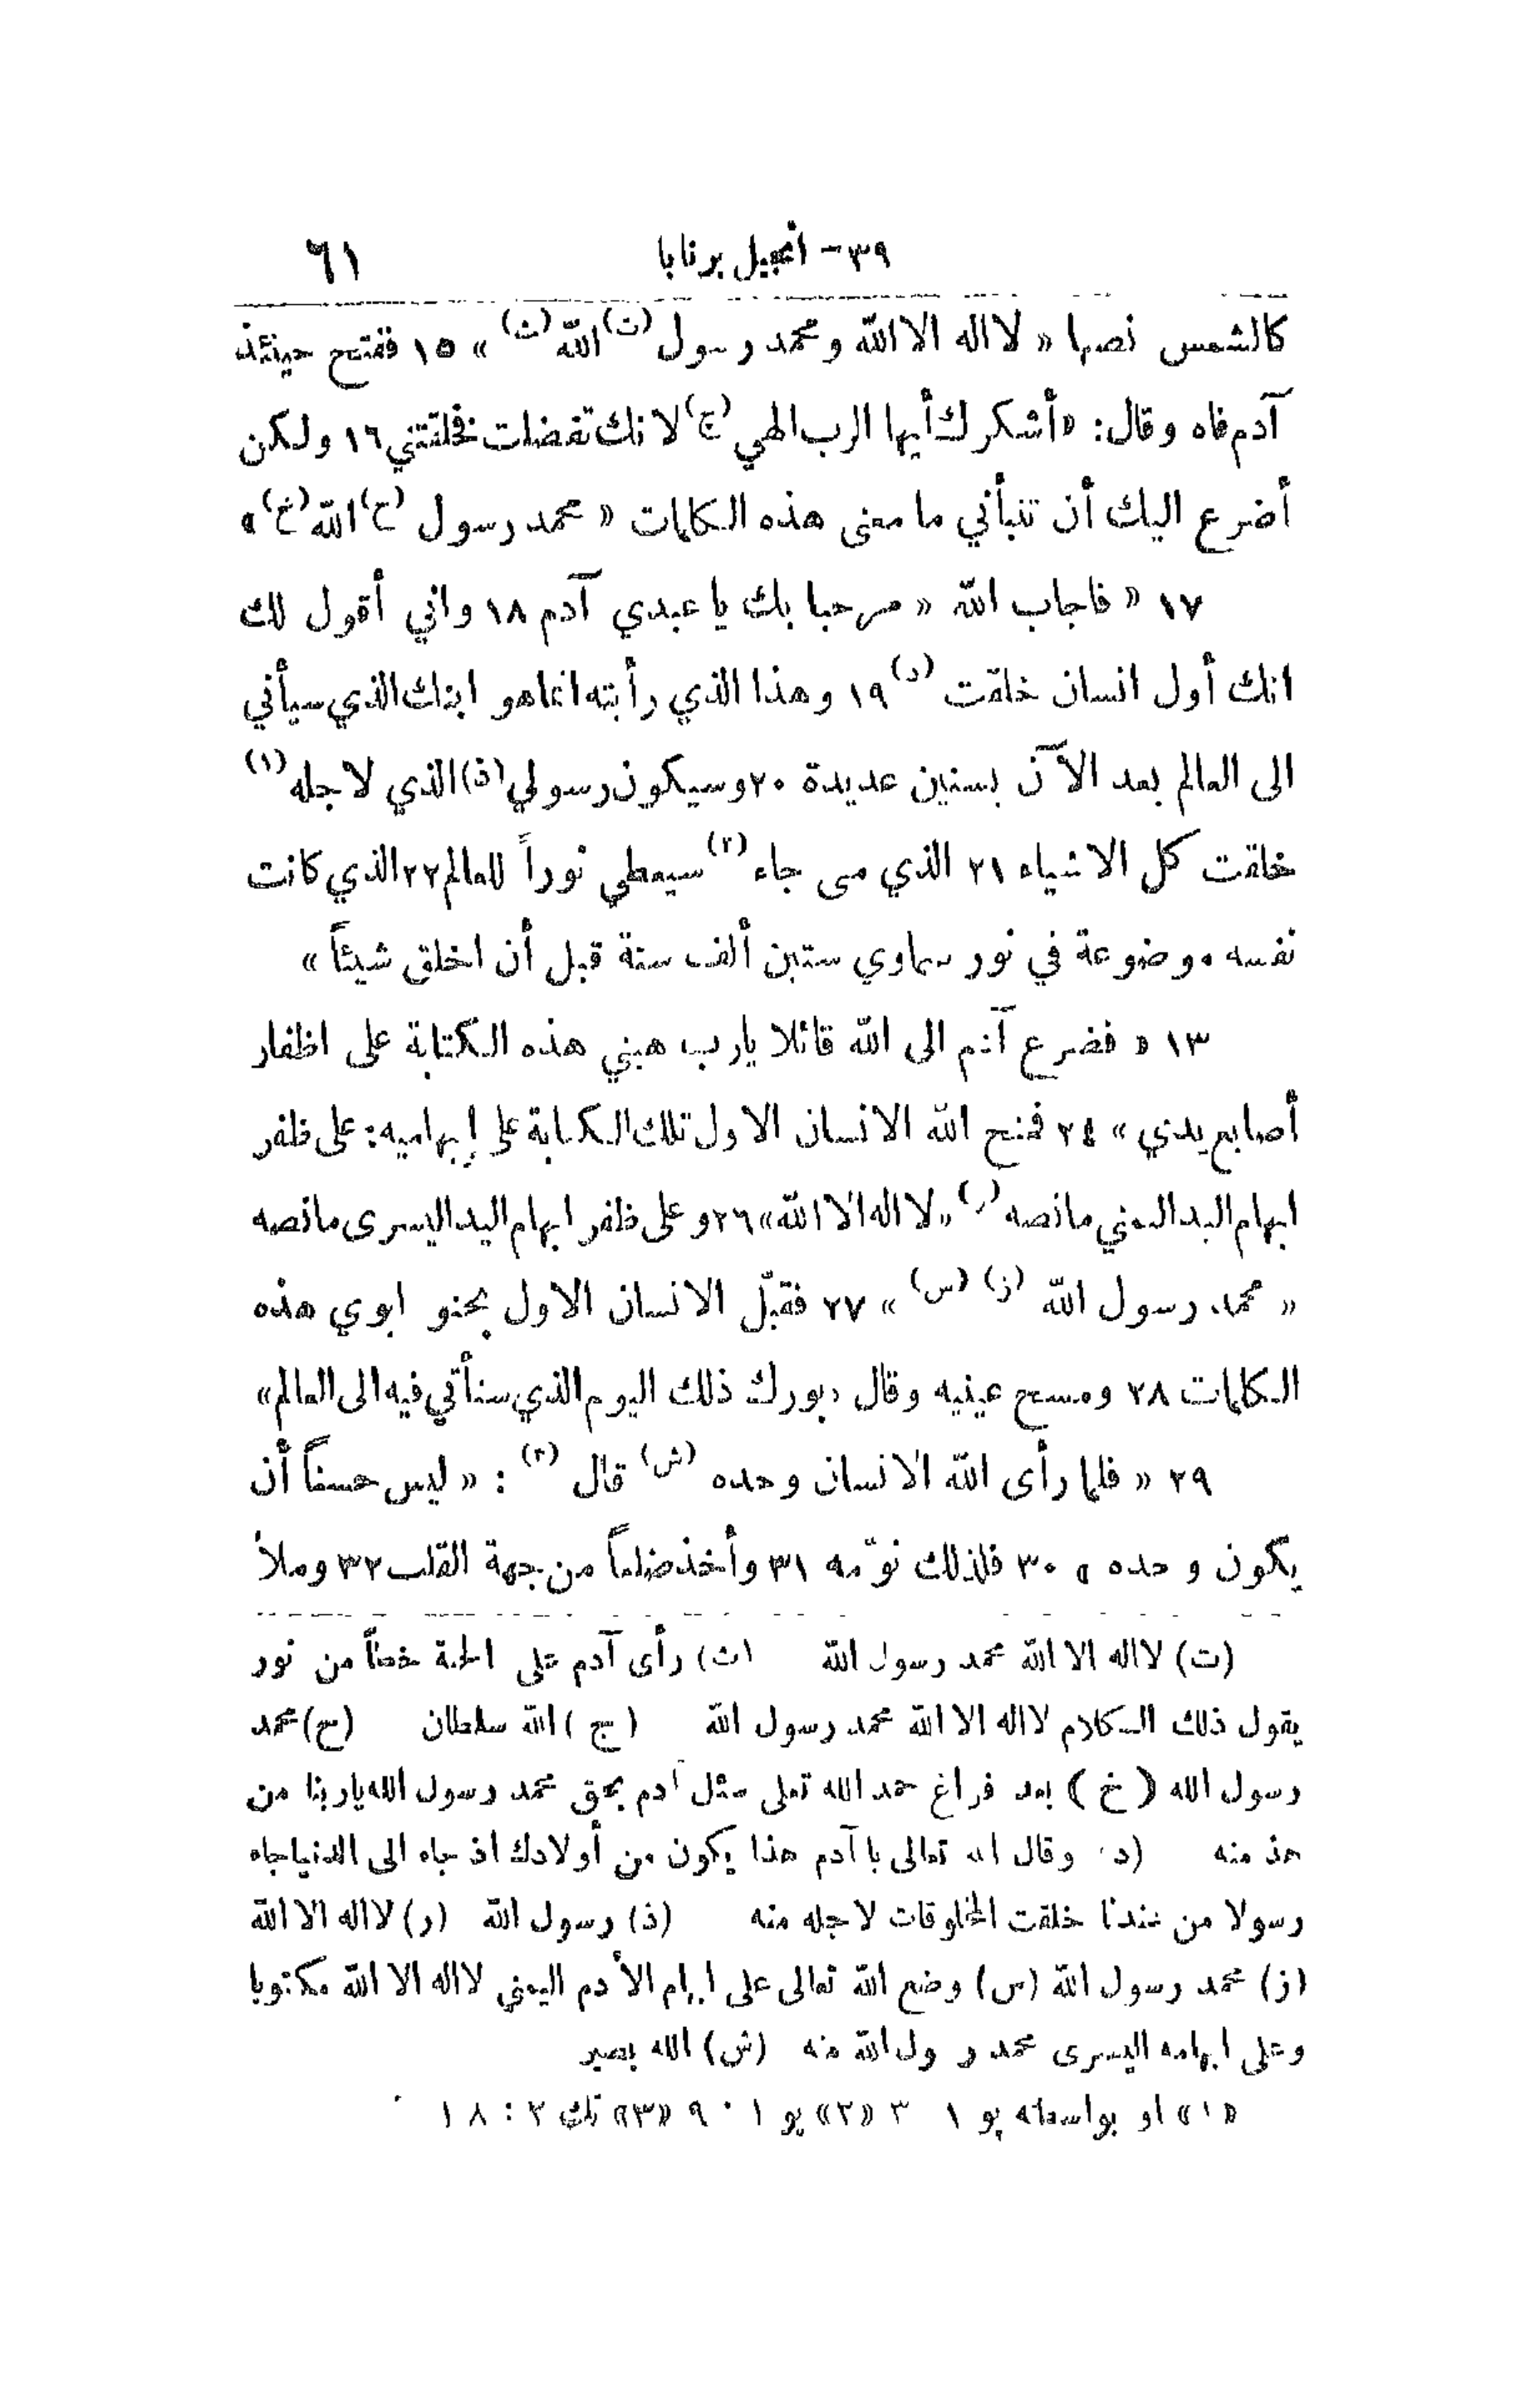 ٣٩ – انجيل برنابا ٦١
كالشمس نصها « لا اله الا الله ومحمد رسول (ت) الله (ث) » ١٥ ففتح حينئذ
آدم فاه وقال: «أشكرك أيها الرب الهي (ج) لانك تفضلت فخلقتني ١٦ ولكن
أضرع اليك أن تنبأني ما معنى هذه الكلمات « محمد رسول (ح) الله (خ) »
١٧ « فاجاب الله « مرحبا بك يا عبدي آدم ١٨ واني أقول لك
انك أول انسان خلقت (د) ١٩ وهذا الذي رأيته انما هو ابنك الذي سيأتي
الى العالم بعد الآن بسنين عديدة ٢٠ وسيكون رسولي (ذ) الذي لاجله (١)
خلقت كل الاشياء ٢١ الذي متى جاء (٢) سيعطي نوراً للعالم ٢٢ الذي كانت
نفسه موضوعة في نور سماوي ستين ألف سنة قبل أن اخلق شيئاً »
١٣ « فضرع آدم الى الله قائلا يارب هبني هذه الكتابة على اظفار
أصابع يدي » ٢٤ فمنح الله الانسان الاول تلك الكتابة على إبهاميه: على ظفر
ابهام اليد اليمني مانصه (ر) « لا اله الا الله» ٢٦ وعلى ظفر ابهام اليد اليسرى مانصه
« محمد رسول الله (ز) (س) » ٢٧ فقبّل الانسان الاول بحنو ابوي هذه
الكلمات ٢٨ ومسح عينيه وقال «بورك ذلك اليوم الذي سنأتي فيه الى العالم»
٢٩ « فلما رأى الله الانسان وحده (ش) قال (٣) : « ليس حسناً أن
يكون وحده » ٣٠ فلذلك نوّمه ٣١ وأخذ ضلعاً من جهة القلب ٣٢ وملأ
(ت) لا اله الا الله محمد رسول الله (ث) رأى آدم على الجنة خطاً من نور
يقول ذلك الكلام لا اله الا الله محمد رسول الله (ج) الله سلطان (ح) محمد
رسول الله (خ) بعد فراغ حمد الله تعلى مثل آدم بحق محمد رسول الله يا ربنا من
هذ منه (د) وقال الله تعالى يا آدم هذا يكون من أولادك اذ جاء الى الدنيا جاء
رسولا من عندنا خلقت المخلوقات لاجله منه (ذ) رسول الله (ر) لا اله الا الله
(ز) محمد رسول الله (س) وضع الله تعالى على ابهام الأدم اليمني لا اله الا الله مكتوبا
وعلى ابهامه اليسرى محمد رسول الله منه (ش) الله بصير
«١» او بواسطته يو ١ ٣ «٢» يو ١ ٠ ٩ «٣» تك ٢ : ١٨